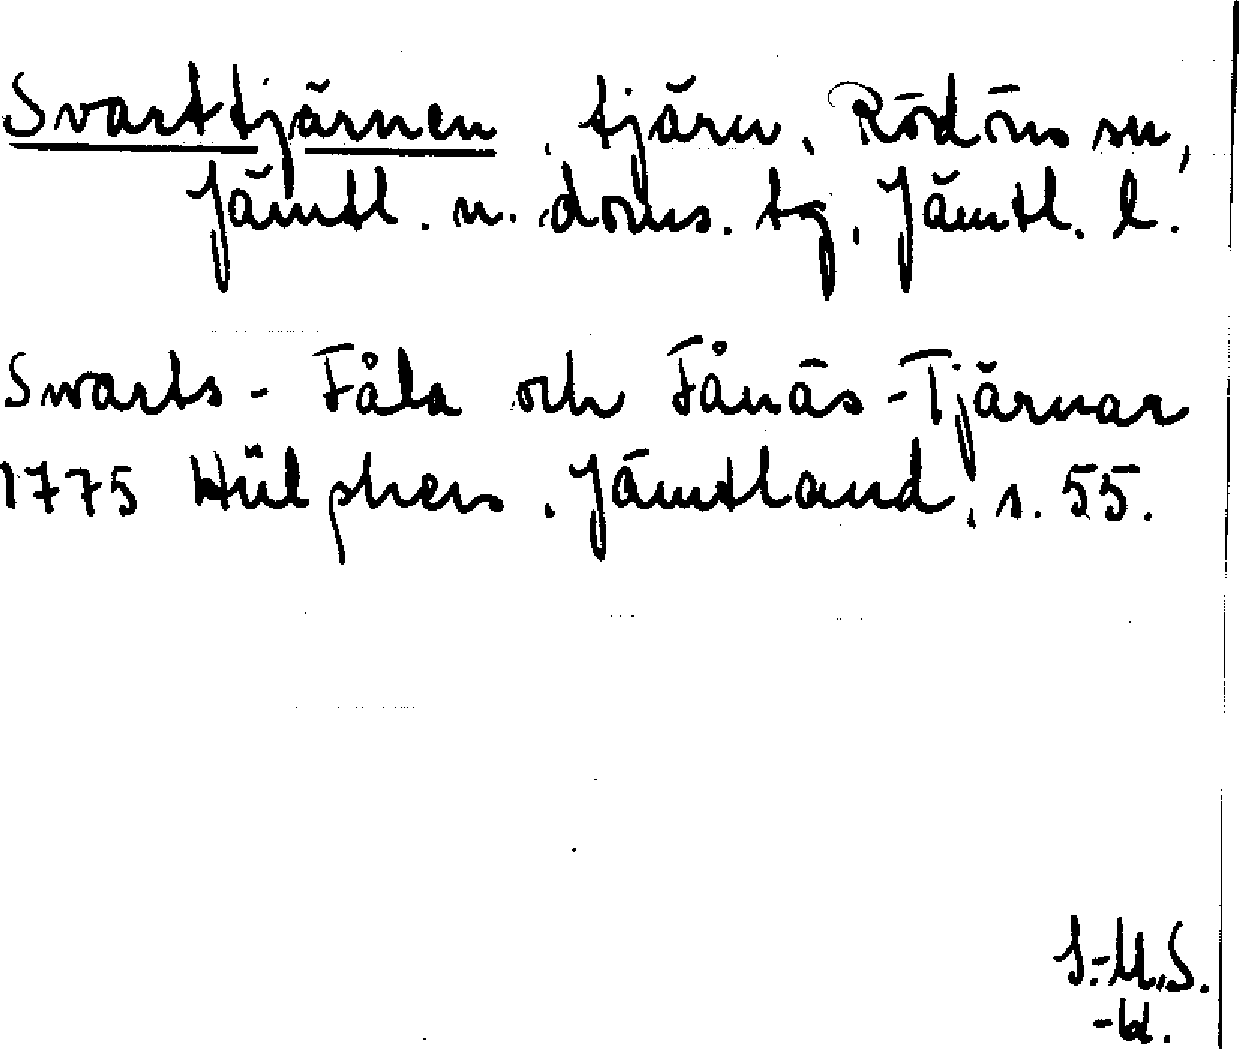 Svarttjärnen, tjärn, Rödöns sn,
Jämtl. n. doms. tg, Jämtl. l.
Swarts- Fåla och Fånäs-Tjärnar
1775 Hülphers. Jämtland, s. 55.